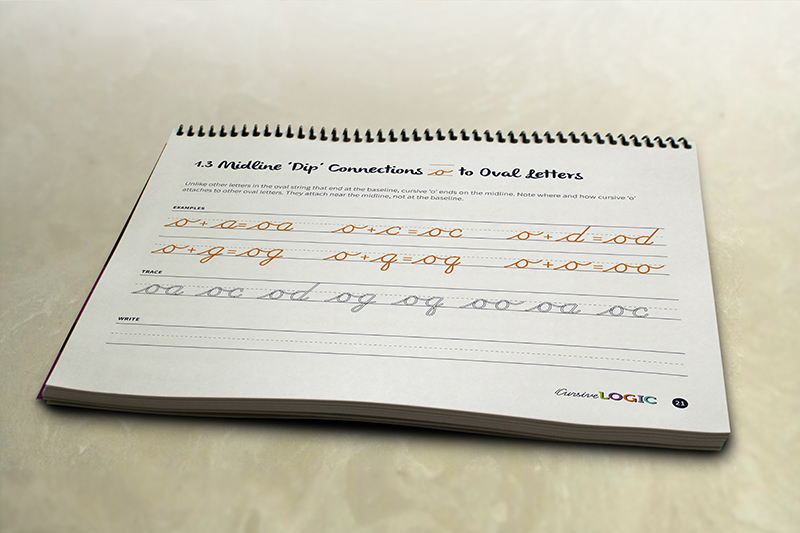 1.3 Midline 'Dip' Connections o to Oval Letters
Unlike other letters in the oval string that end at the baseline, cursive 'o' ends on the midline. Note where and how cursive 'o'
attaches to other oval letters. They attach near the midline, not at the baseline.
EXAMPLES
o + a = oa o + c = oc o + d = od
o + g = og o + q = oq o + o = oo
TRACE
oa oc od og oq oo oa oc
WRITE
CursiveLOGIC 21